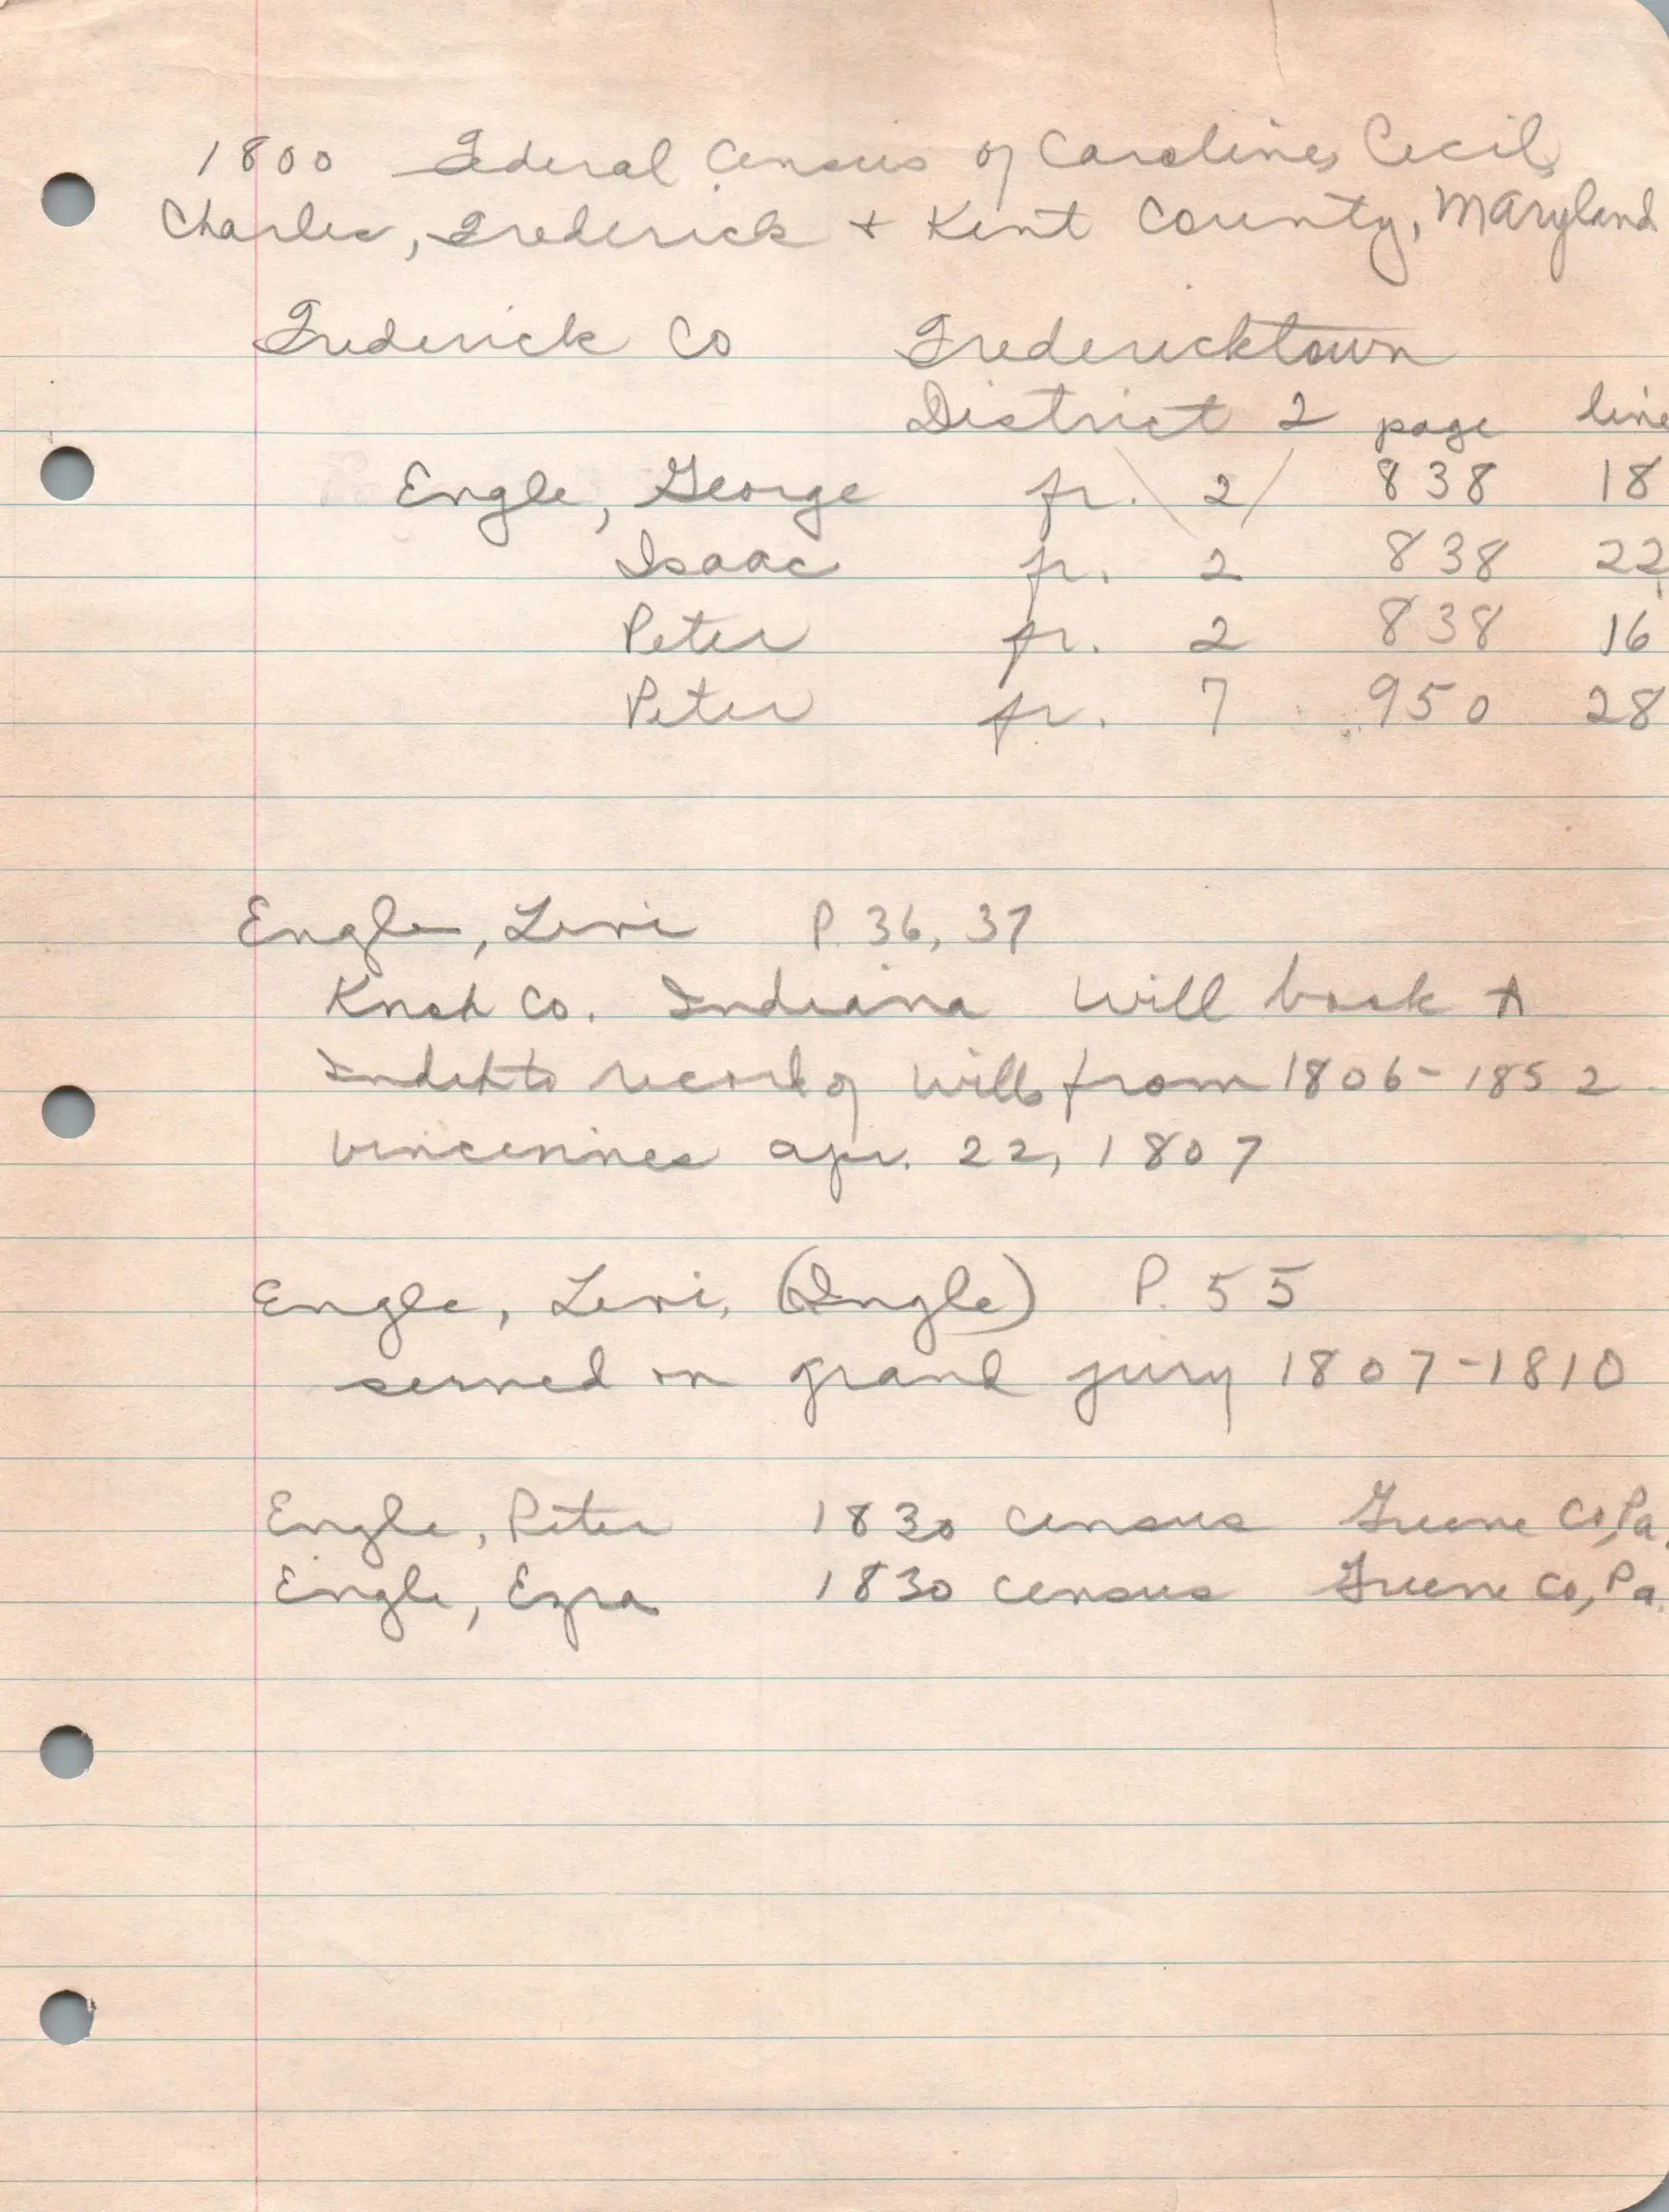 1800 Federal Census of Caroline, Cecil,
Charles, Frederick + Kent County, Maryland
Frederick Co Fredericktown
District 2 page line
Engle, George fr. 2 838 18
Isaac fr. 2 838 22
Peter fr. 2 838 16
Peter fr. 7 950 28
Engle, Levi P. 36, 37
Knox Co. Indiana Will book A
Index to record of Wills from 1806-1852
Vincennes Apr. 22, 1807
Engle, Levi, (Ingle) P. 55
served on grand jury 1807-1810
Engle, Peter 1830 census Greene Co, Pa.
Engle, Ezra 1830 census Greene Co, Pa.